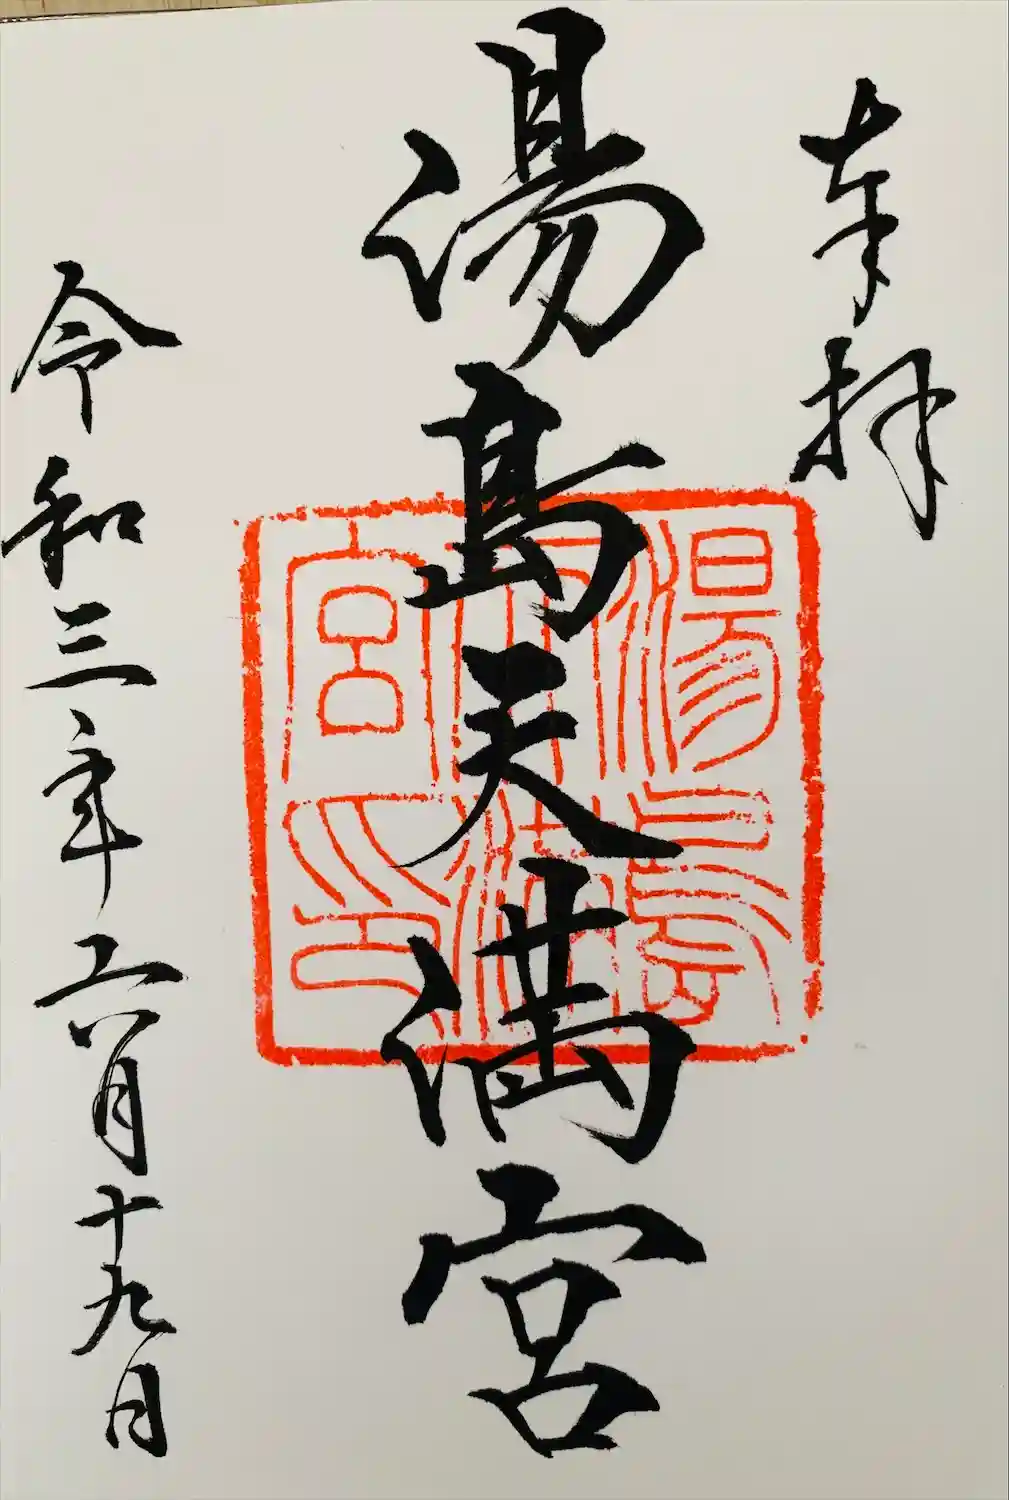 奉拝
湯島天満宮
湯島天満宮印
令和三年六月十九日